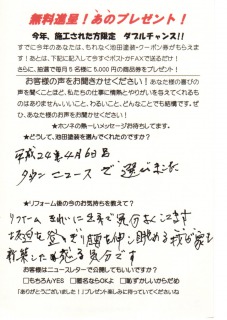 無料進呈！あのプレゼント！
今年、施工された方限定 ダブルチャンス!!
すでに今年のあなたは、もれなく池田塗装・クーポン券がもらえま
す！あとは、下記に記入して今すぐポストかFAXで送るだけ！
さらに、抽選で毎月5名様に5,000円の商品券をプレゼント！
お客様の声をお聞きかせください！あなた様の喜びの
声を聞くことほど、私たちの仕事に情熱とやりがいを与えてくれるも
のはありません。いいこと、わるいこと、どんなことでも結構です。ぜ
ひ、あなた様のお声をお聞かせください！
★ホンネの熱～いメッセージお待ちしてます。
★どうして、池田塗装を選んでくれたのですか？
平成24年4月6日号
タウンニュースで選びました
★リフォーム後の今のお気持ちを教えて？
リフォーム きれいに 気分
坂道を登り 腰を伸し眺める我が家も
新築した 気分です
お客様はニュースレターで公開してもいいですか？
□もちろんYES □匿名ならOKよ □恥ずかしいからだめ
「ありがとうございました！」プレゼント楽しみに待っていてくださいね